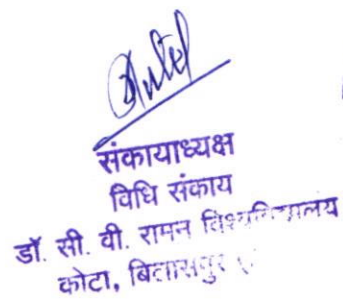 संकायाध्यक्ष
विधि संकाय
डॉ. सी. वी. रामन विश्वविद्यालय
कोटा, बिलासपुर